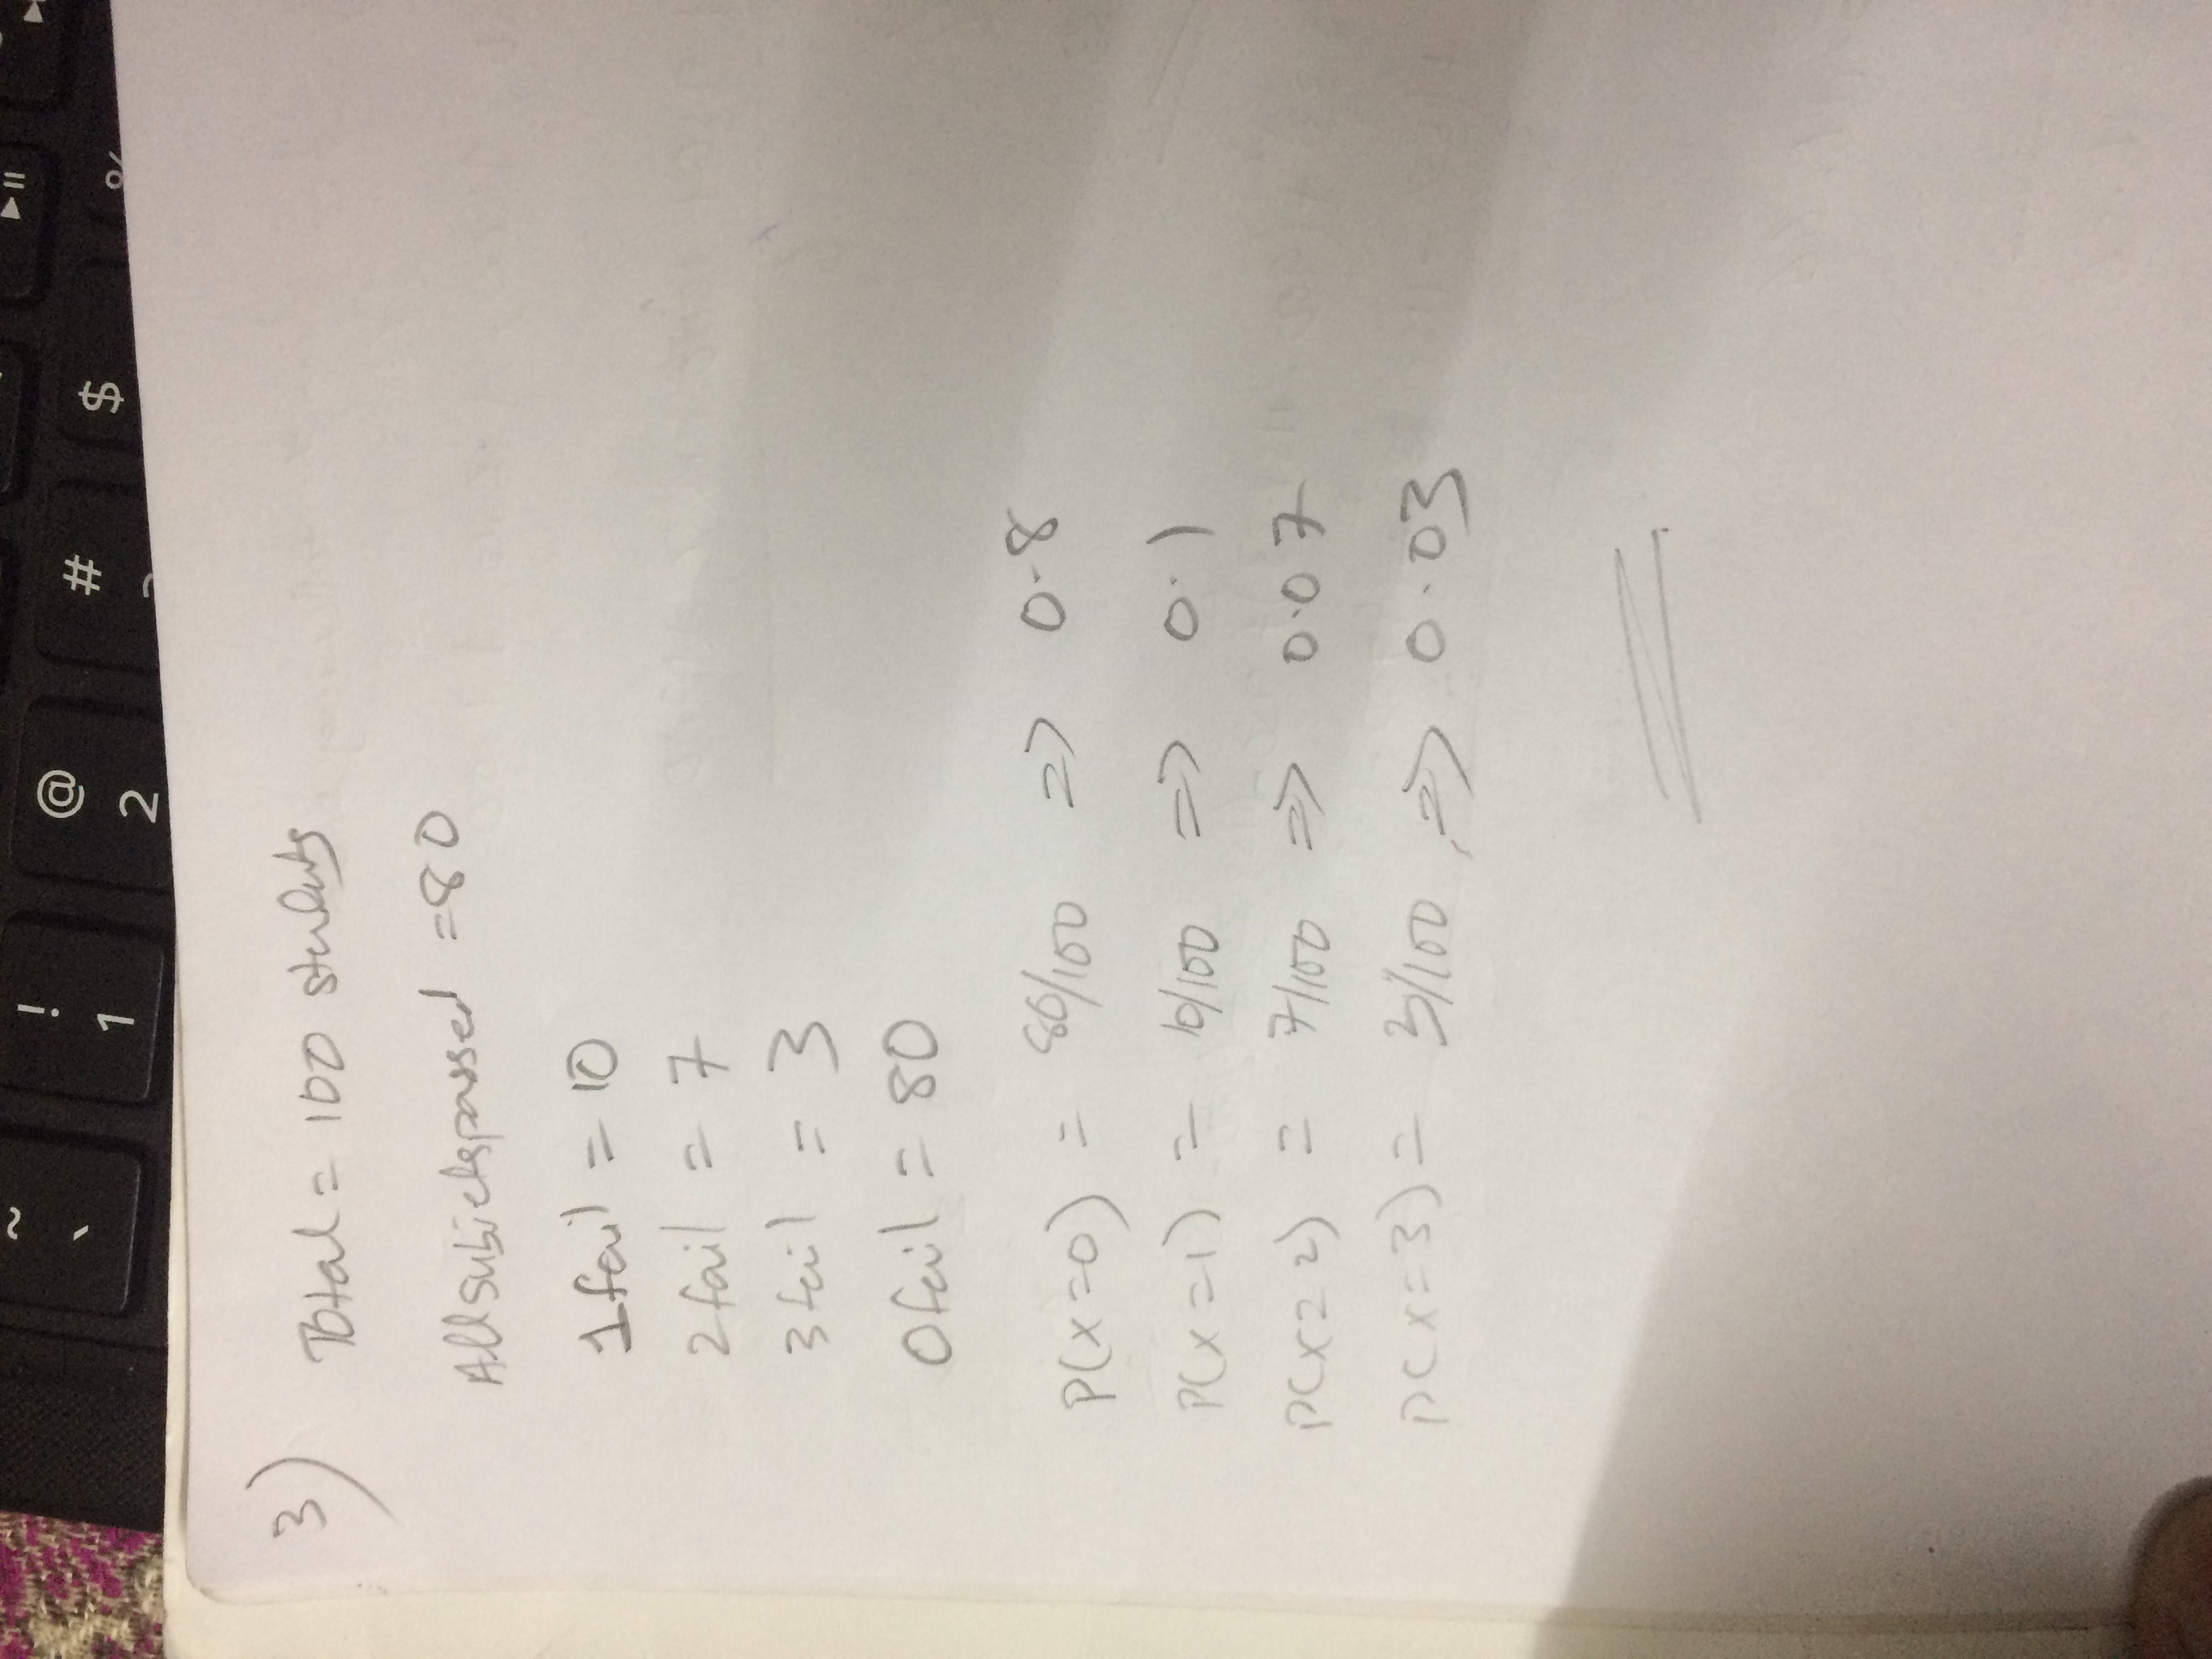 ~ ! @ # $ %
` 1 2
3) Total = 100 students
All subjects passed = 80
1 fail = 10
2 fail = 7
3 fail = 3
0 fail = 80
P(x=0) = 80/100 => 0.8
P(x=1) = 10/100 => 0.1
P(x=2) = 7/100 => 0.07
P(x=3) = 3/100 => 0.03